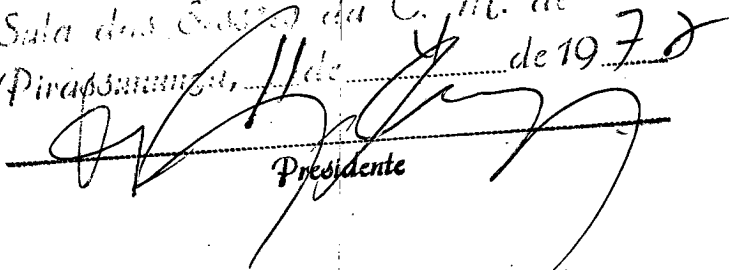 Sala das Sessões da C. M. de
Pirassununga, 11 de de 197
Presidente